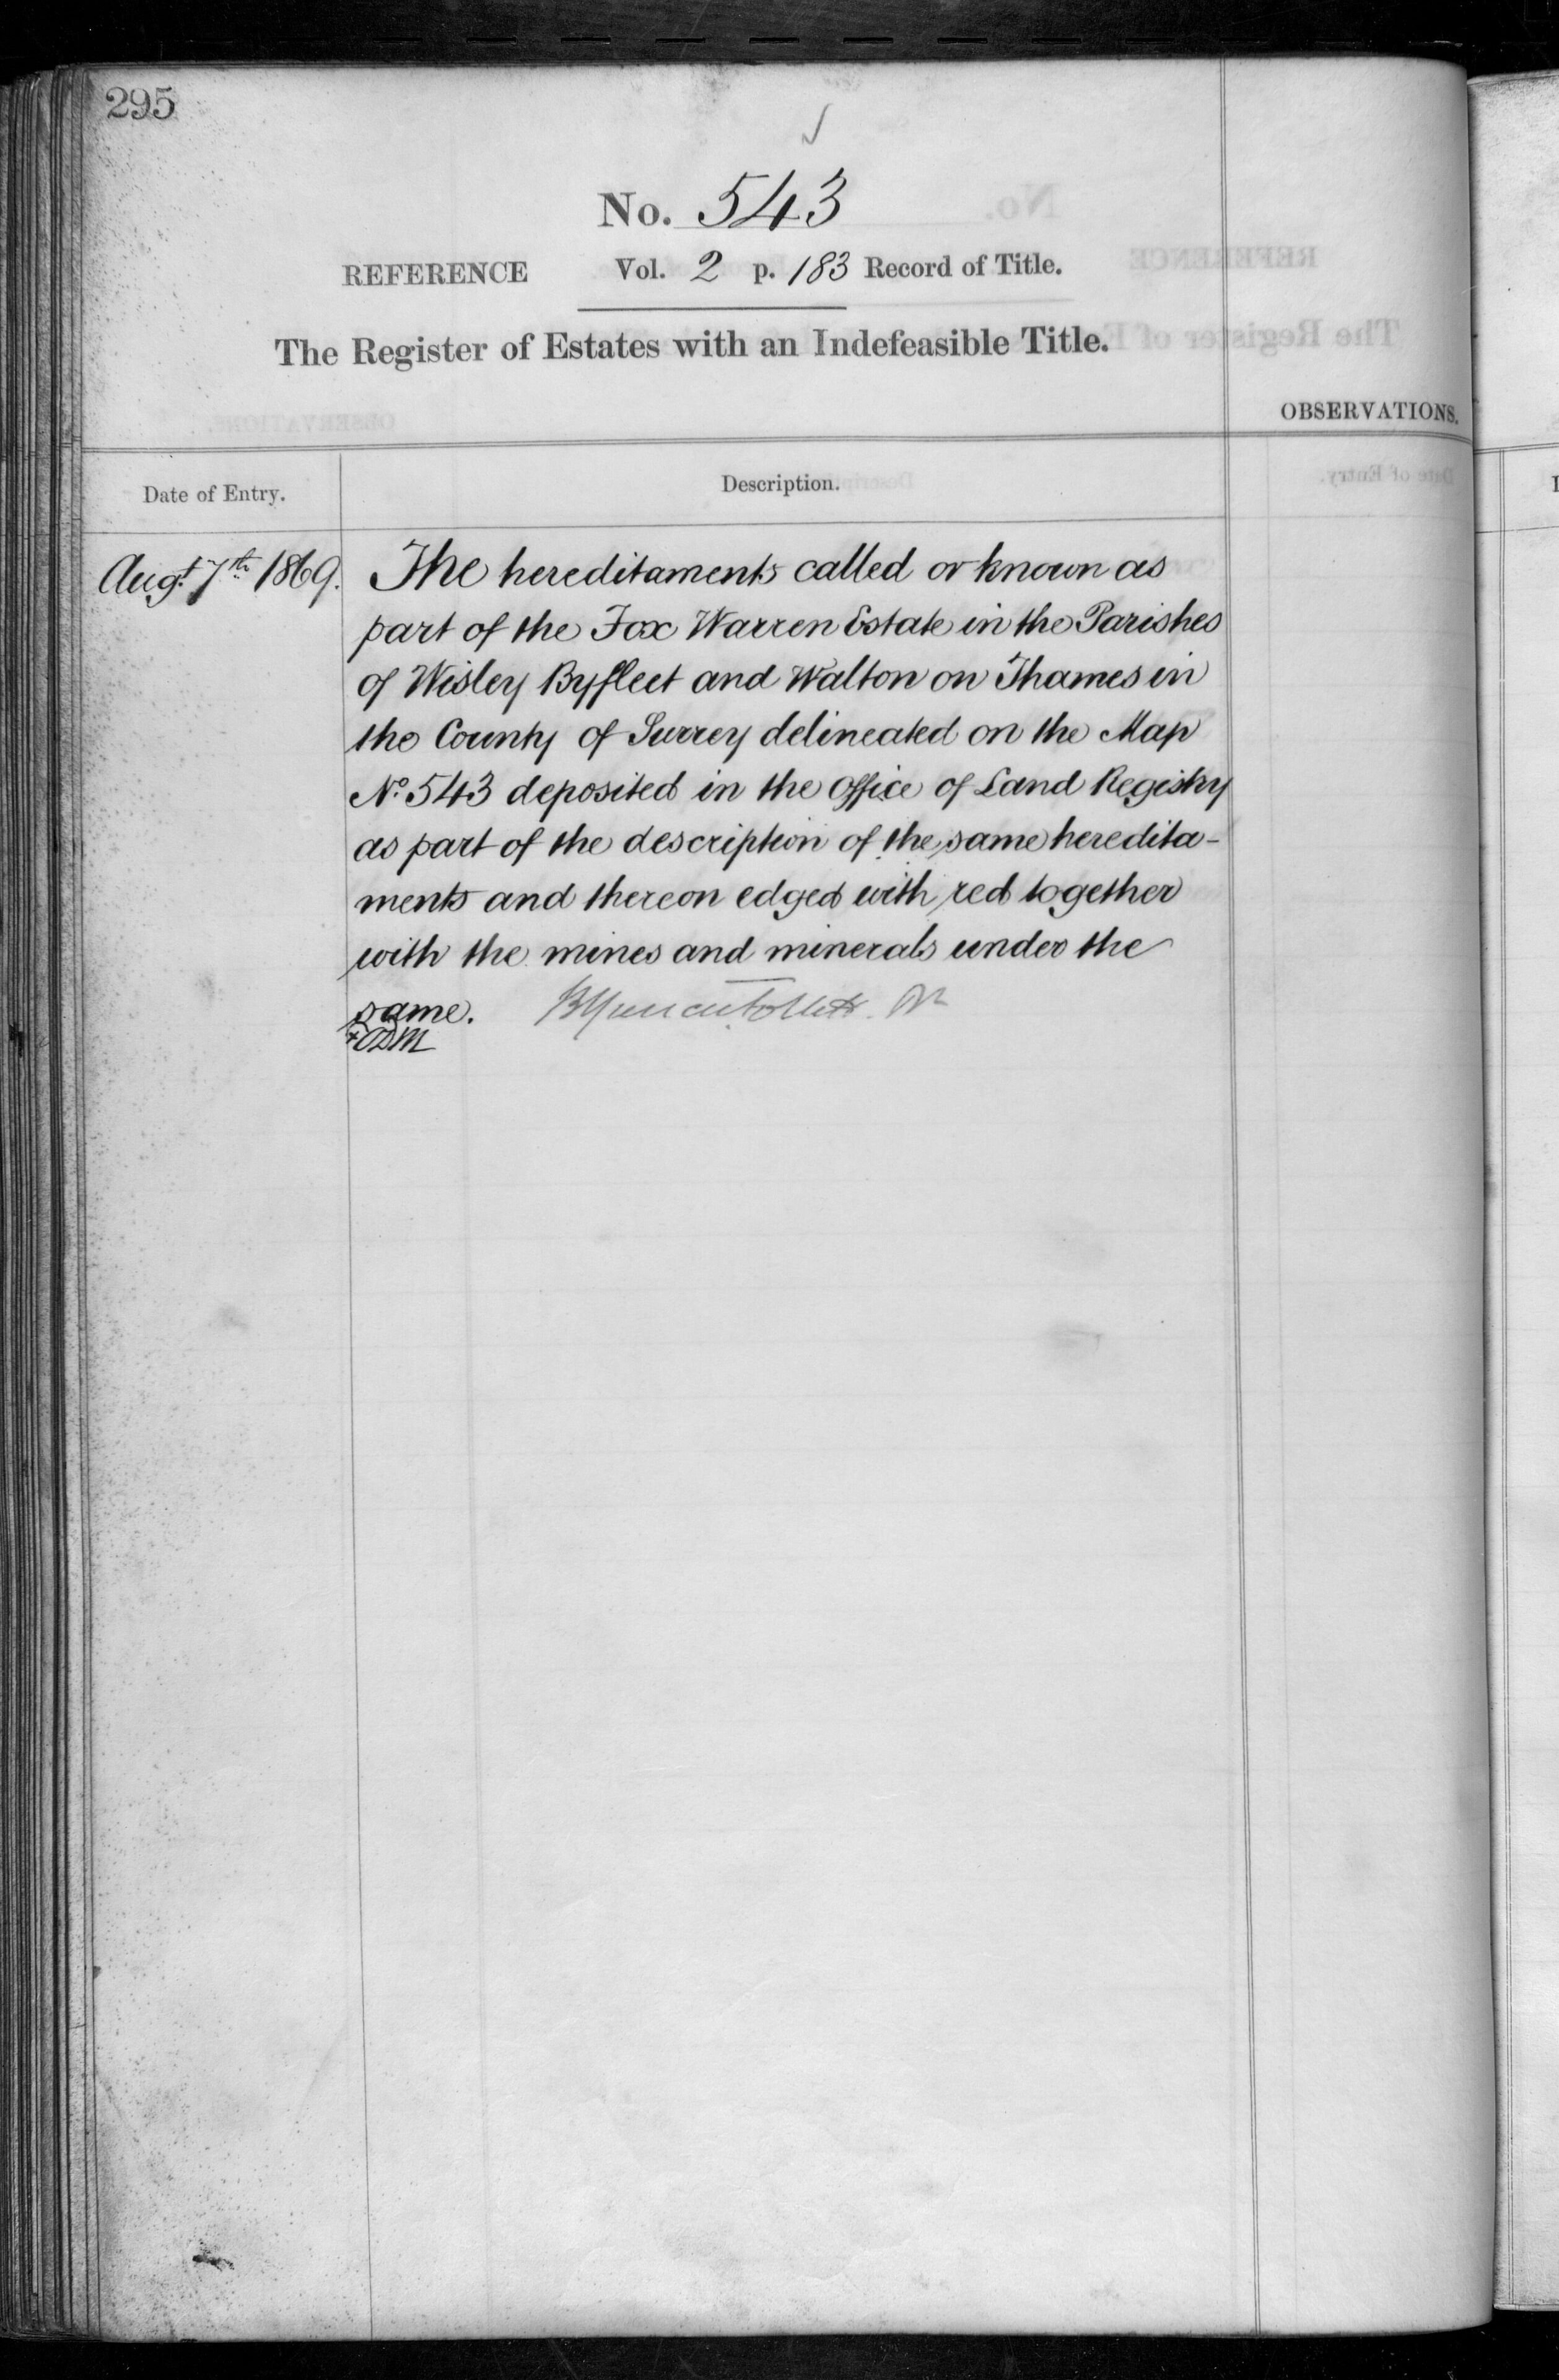 295
No. 543
REFERENCE Vol. 2 p. 183 Record of Title.
The Register of Estates with an Indefeasible Title.
OBSERVATIONS.
Date of Entry.
Description.
Augt. 7th 1869.
The hereditaments called or known as
part of the Fox Warren Estate in the Parishes
of Wisley Byfleet and Walton on Thames in
the County of Surrey delineated on the Map
No. 543 deposited in the Office of Land Registry
as part of the description of the same heredita-
ments and thereon edged with red together
with the mines and minerals under the
same.